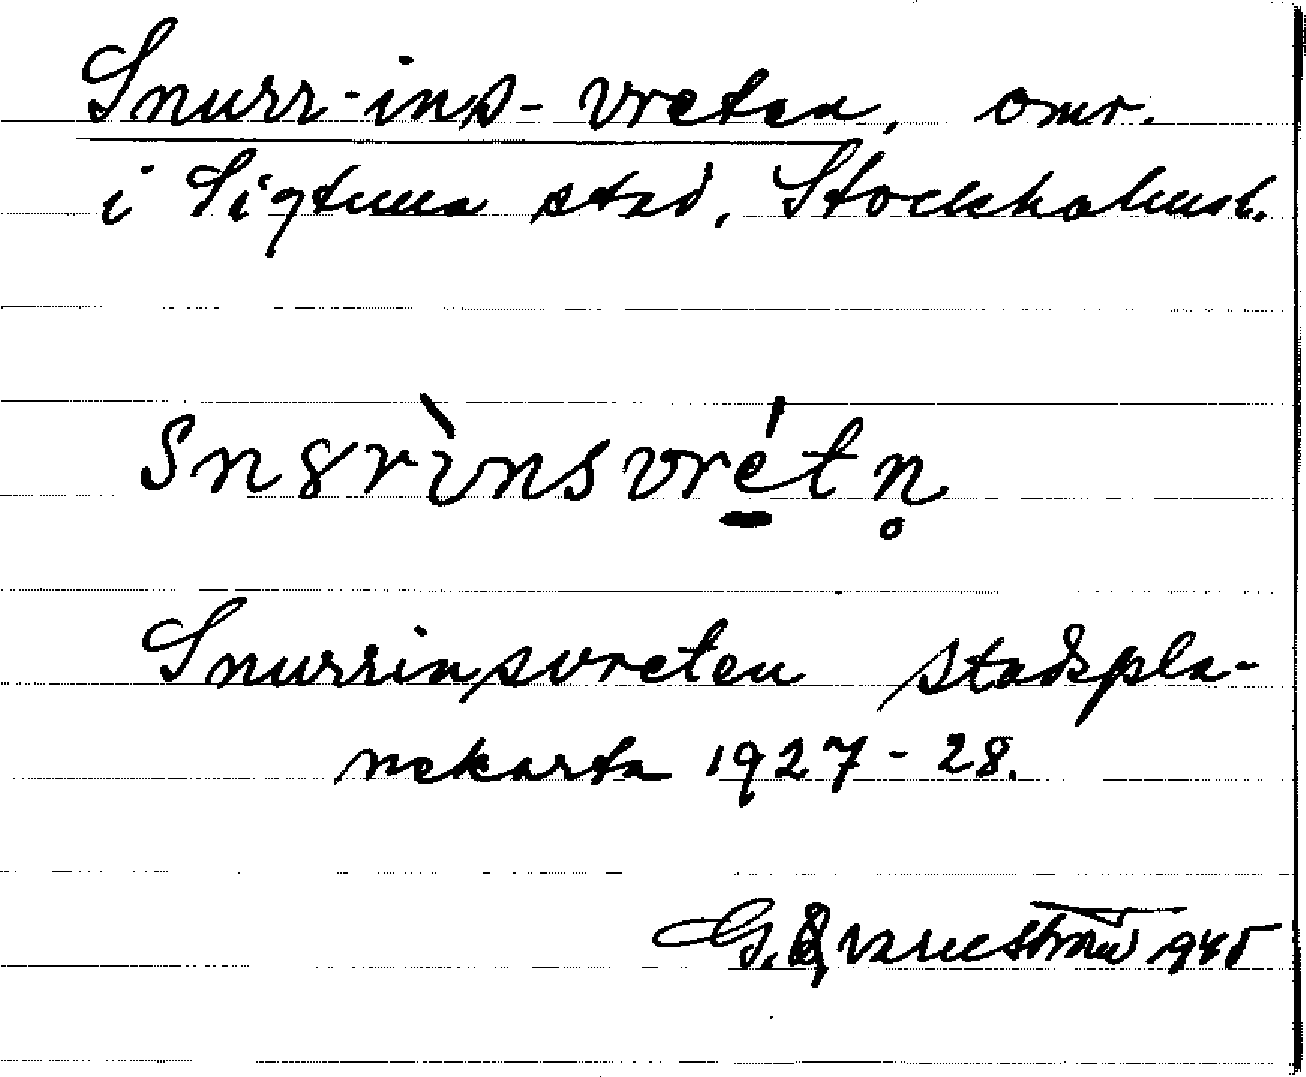 Snurr-ins-vreten, omr.
i Sigtuna stad, Stockholmsl.
Snurrinsvreten stadspla-
nekarta 1927-28.
G. Qvarnström 1945